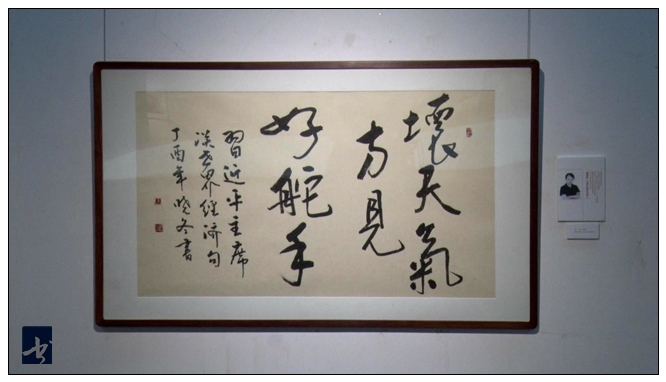 壞天氣
方見
好舵手
習近平主席
談世界經济句
丁酉年 曉冬書